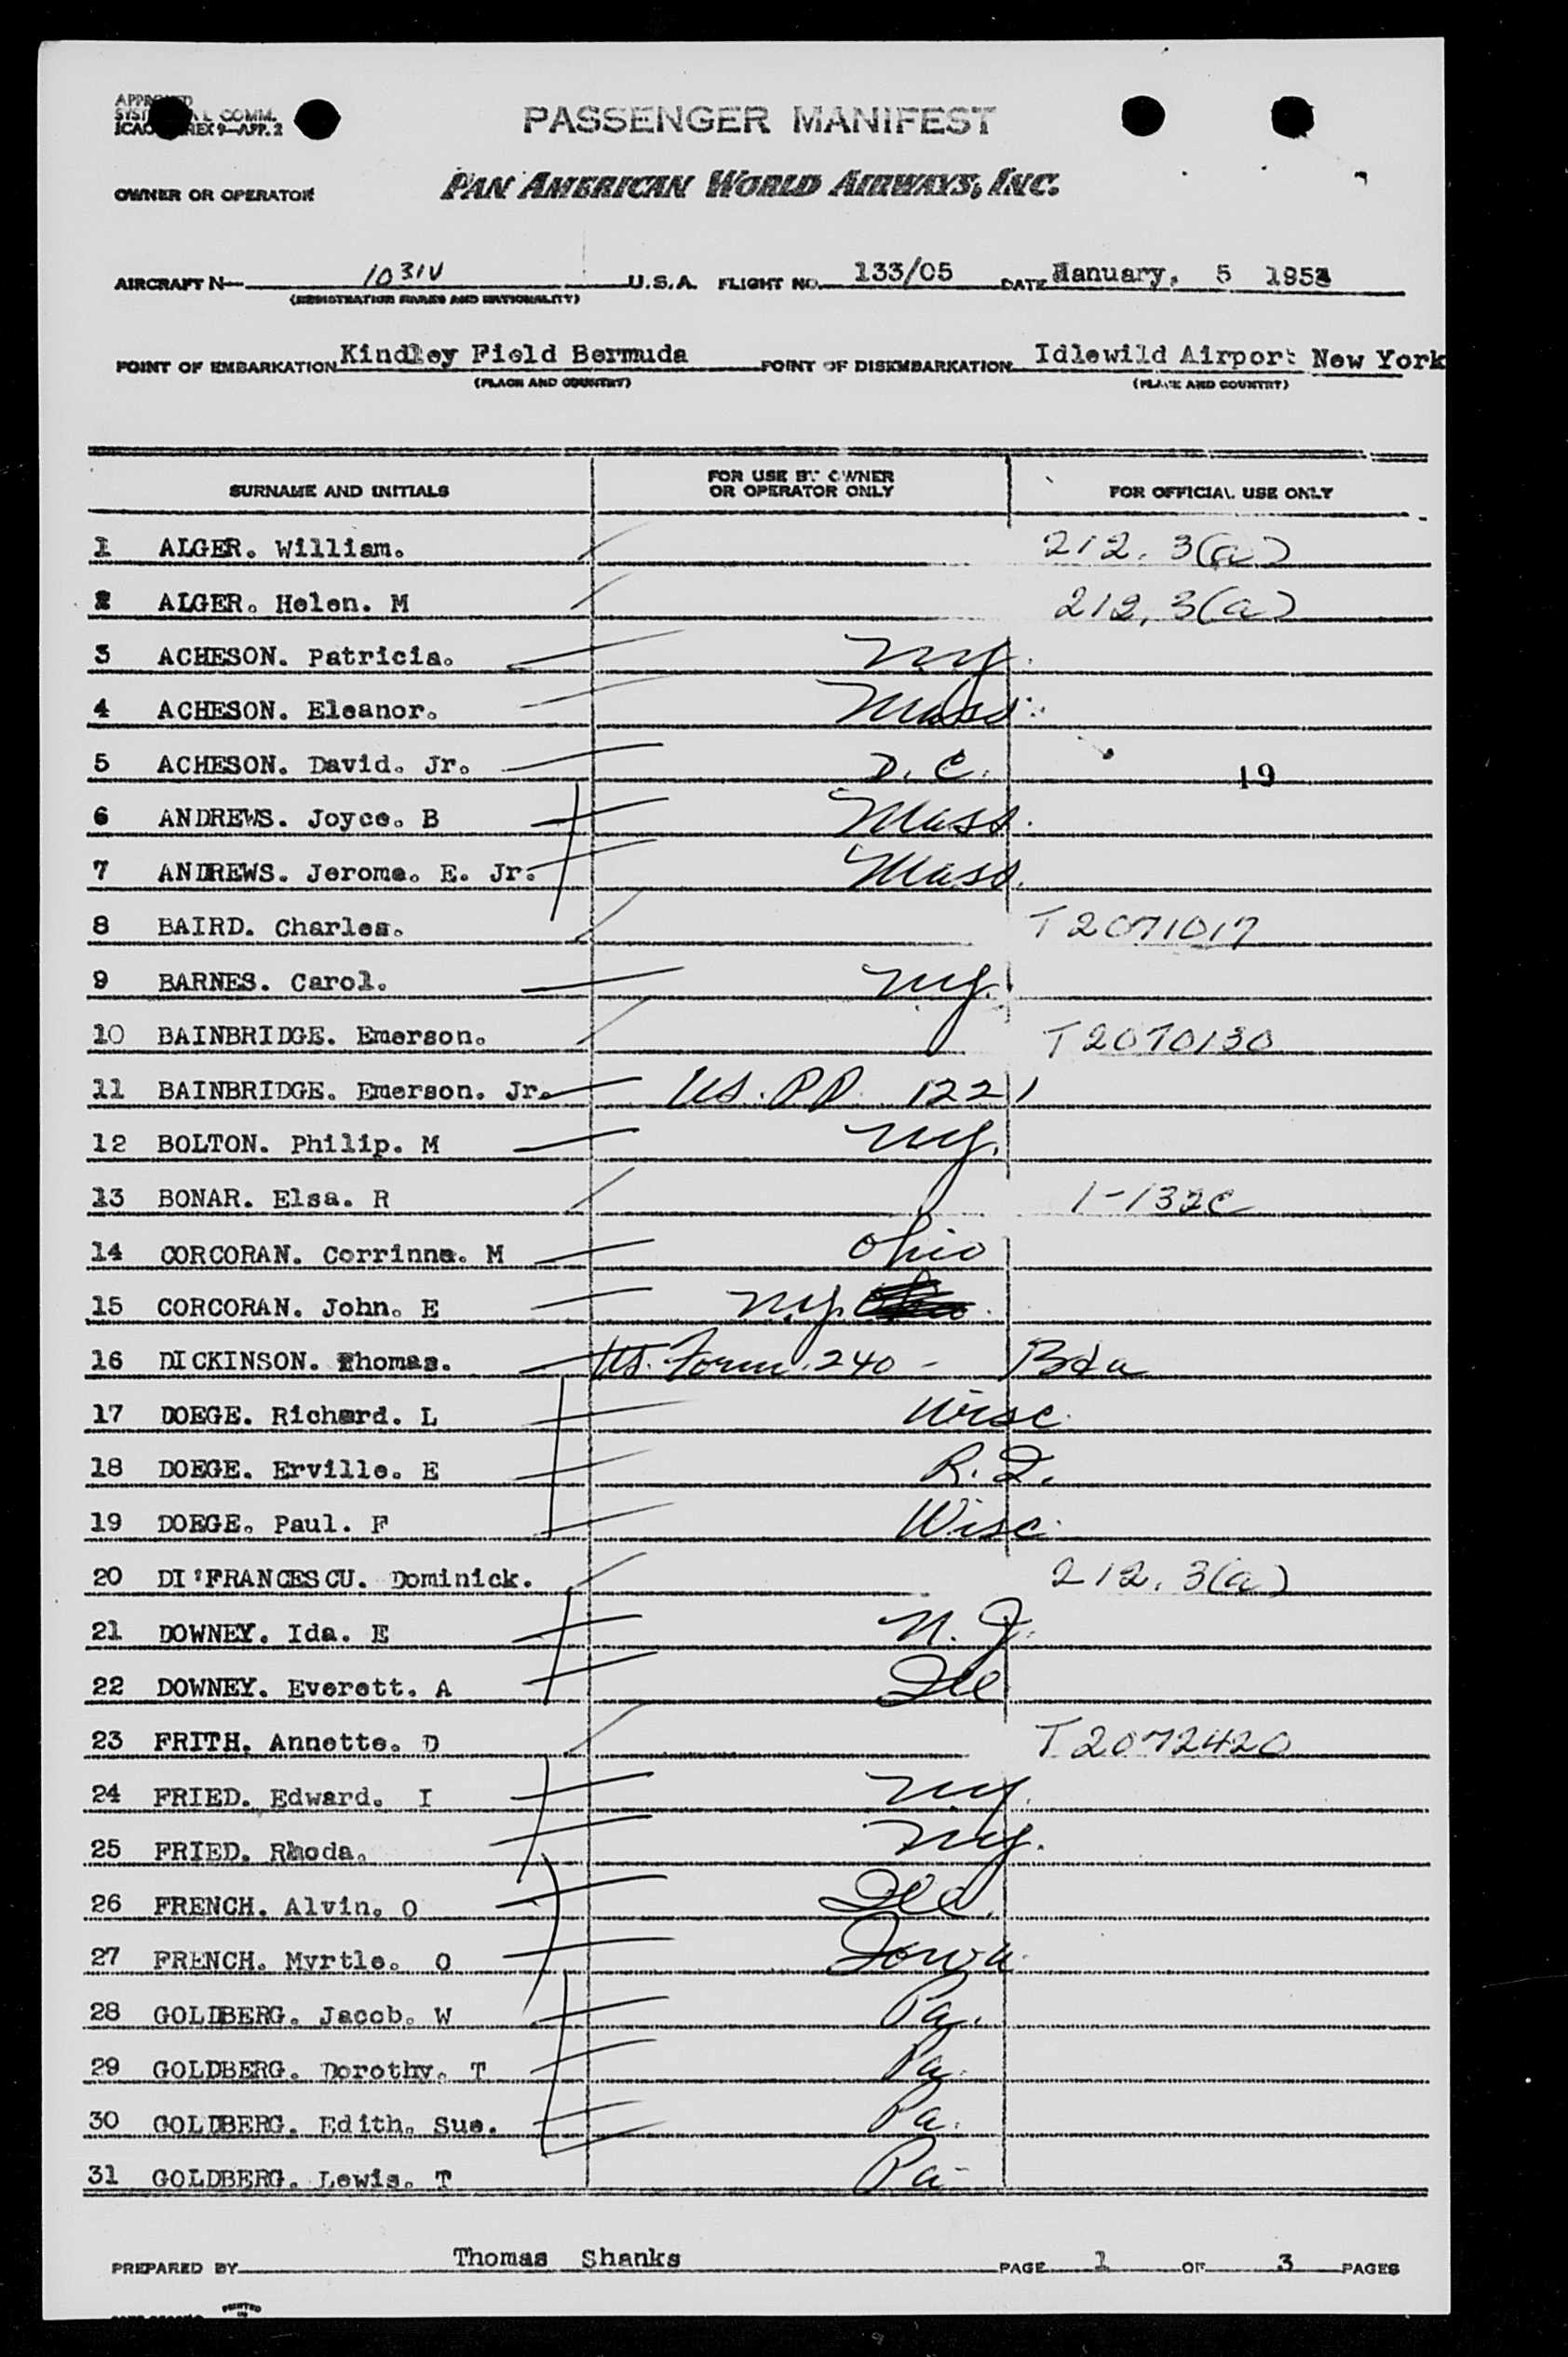 PASSENGER MANIFEST
OWNER OR OPERATOR PAN AMERICAN WORLD AIRWAYS, INC.
AIRCRAFT N 1031V U.S.A. FLIGHT NO. 133/05 DATE January, 5 195
(REGISTRATION MARKS AND NATIONALITY)
POINT OF EMBARKATION Kindley Field Bermuda POINT OF DISEMBARKATION Idlewild Airport New York
(PLACE AND COUNTRY) (PLACE AND COUNTRY)
SURNAME AND INITIALS FOR USE BY OWNER OR OPERATOR ONLY FOR OFFICIAL USE ONLY
1 ALGER. William. 212.3(a)
2 ALGER. Helen. M 212.3(a)
3 ACHESON. Patricia. NY.
4 ACHESON. Eleanor. Mass.
5 ACHESON. David. Jr. D.C. 19
6 ANDREWS. Joyce. B Mass.
7 ANDREWS. Jerome. E. Jr. Mass.
8 BAIRD. Charles. T2071017
9 BARNES. Carol. NY.
10 BAINBRIDGE. Emerson. T2070130
11 BAINBRIDGE. Emerson. Jr. US. PP. 1221
12 BOLTON. Philip. M NY.
13 BONAR. Elsa. R 1-132c
14 CORCORAN. Corrinne. M Ohio
15 CORCORAN. John. E NY.
16 DICKINSON. Thomas. US. Form. 240 - Bda
17 DOEGE. Richard. L Wisc.
18 DOEGE. Erville. E R.I.
19 DOEGE. Paul. F Wisc.
20 DI'FRANCESCU. Dominick. 212.3(a)
21 DOWNEY. Ida. E N.J.
22 DOWNEY. Everett. A Ill
23 FRITH. Annette. D T2072420
24 FRIED. Edward. I NY.
25 FRIED. Rhoda. NY.
26 FRENCH. Alvin. O Ill.
27 FRENCH. Myrtle. O Iowa.
28 GOLDBERG. Jacob. W Pa.
29 GOLDBERG. Dorothy. T Pa.
30 GOLDBERG. Edith. Sue. Pa.
31 GOLDBERG. Lewis. T Pa
PREPARED BY Thomas Shanks PAGE 1 OF 3 PAGES
PRINTED